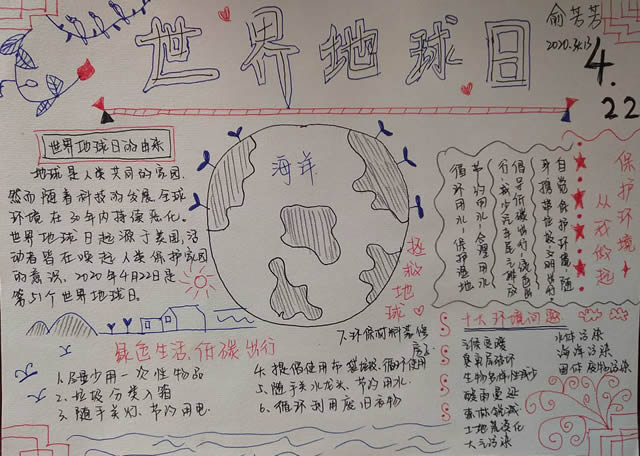 世界地球日
俞芳芳
4.22
世界地球日的由来
地球是人类共同的家园,
然而随着科技的发展,全球
环境在30年内持续恶化。
世界地球日起源于美国,活
动者旨在唤起人类保护家园
的意识。2020年4月22日是
第51个世界地球日。
海洋
拯救地球
自觉保护环境,随
手携带垃圾,文明出行,
倡导低碳出行,使自
行车,减少汽车尾气排放
节约用水,合理用水,
循环用水,保护湿地
保护环境
从我做起
绿色生活,低碳出行
1.尽量少用一次性物品
2.垃圾分类入箱
3.随手关灯,节约用电.
4.提倡使用布袋,循环使用
5.随手关水龙头,节约用水.
6.循环利用废旧衣物
7.环保材料装修
房子
十大环境问题
气候变暖
臭氧层破坏
生物多样性减少
酸雨蔓延
森林锐减
土地荒漠化
大气污染
水体污染
海洋污染
固体废物污染